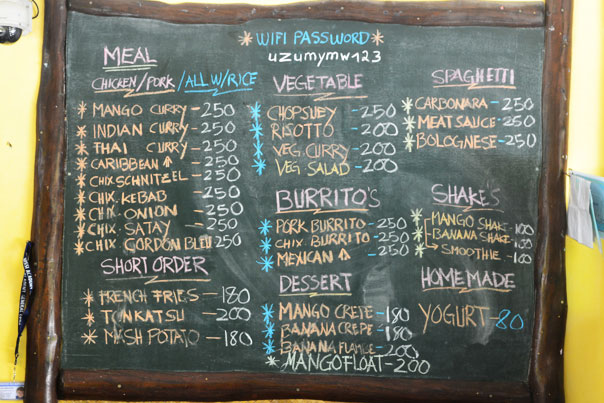 * WIFI PASSWORD *
uzumymw123
MEAL
CHICKEN/PORK/ALL W/RICE
* MANGO CURRY - 250
* INDIAN CURRY - 250
* THAI CURRY - 250
* CARIBBEAN ↑ - 250
* CHIX SCHNITZEL - 250
* CHIX. KEBAB - 250
* CHIX. ONION - 250
* CHIX. SATAY - 250
* CHIX GORDON BLEU 250
SHORT ORDER
* FRENCH FRIES - 180
* TONKATSU - 200
* MASH POTATO - 180
VEGETABLE
* CHOPSUEY - 250
* RISOTTO - 200
* VEG. CURRY - 200
* VEG SALAD - 200
BURRITO'S
* PORK BURRITO - 250
* CHIX BURRITO - 250
* MEXICAN ↑ - 250
DESSERT
* MANGO CREPE - 180
* BANANA CREPE - 180
* BANANA FLAMBE - 200
* MANGO FLOAT - 200
SPAGHETTI
* CARBONARA - 250
* MEAT SAUCE - 250
* BOLOGNESE - 250
SHAKE'S
* MANGO SHAKE - 100
* BANANA SHAKE - 100
* SMOOTHIE - 100
HOME MADE
YOGURT - 80